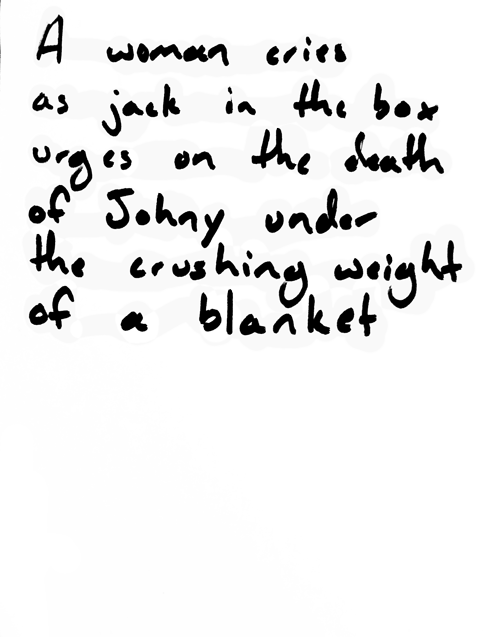 A woman cries
as jack in the box
urges on the death
of Johny under
the crushing weight
of a blanket